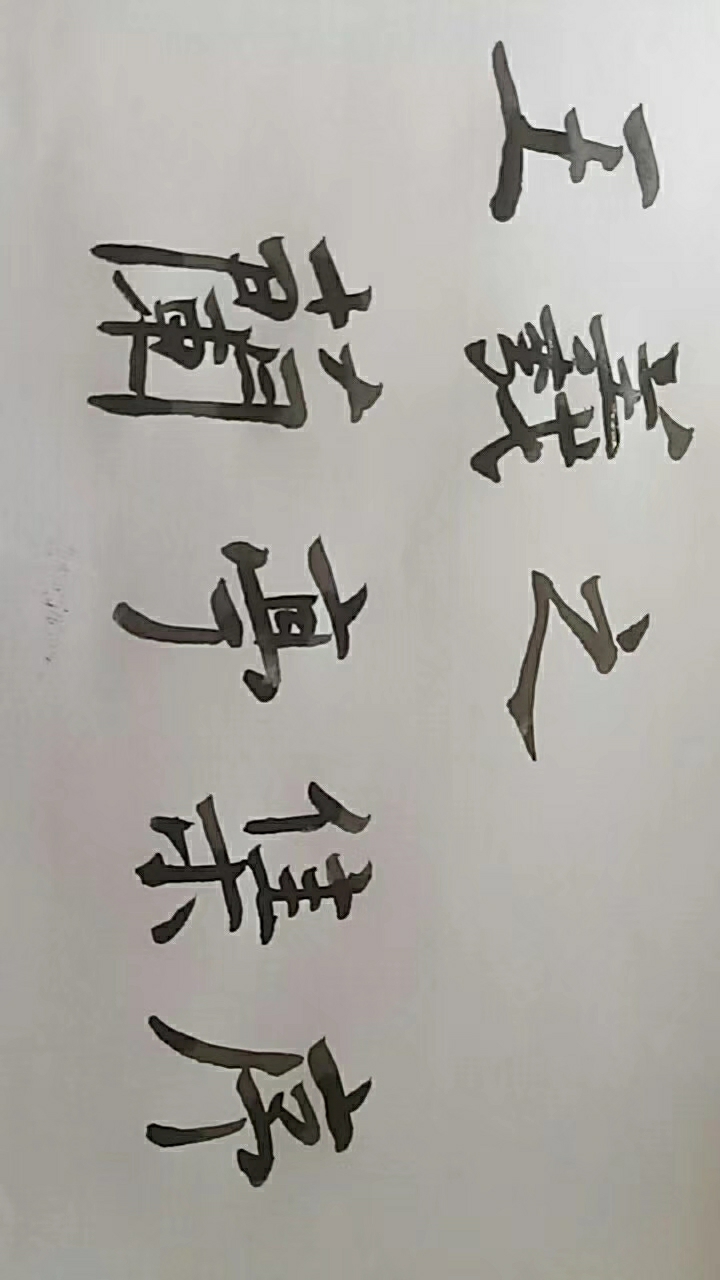 王羲之
蘭亭集序